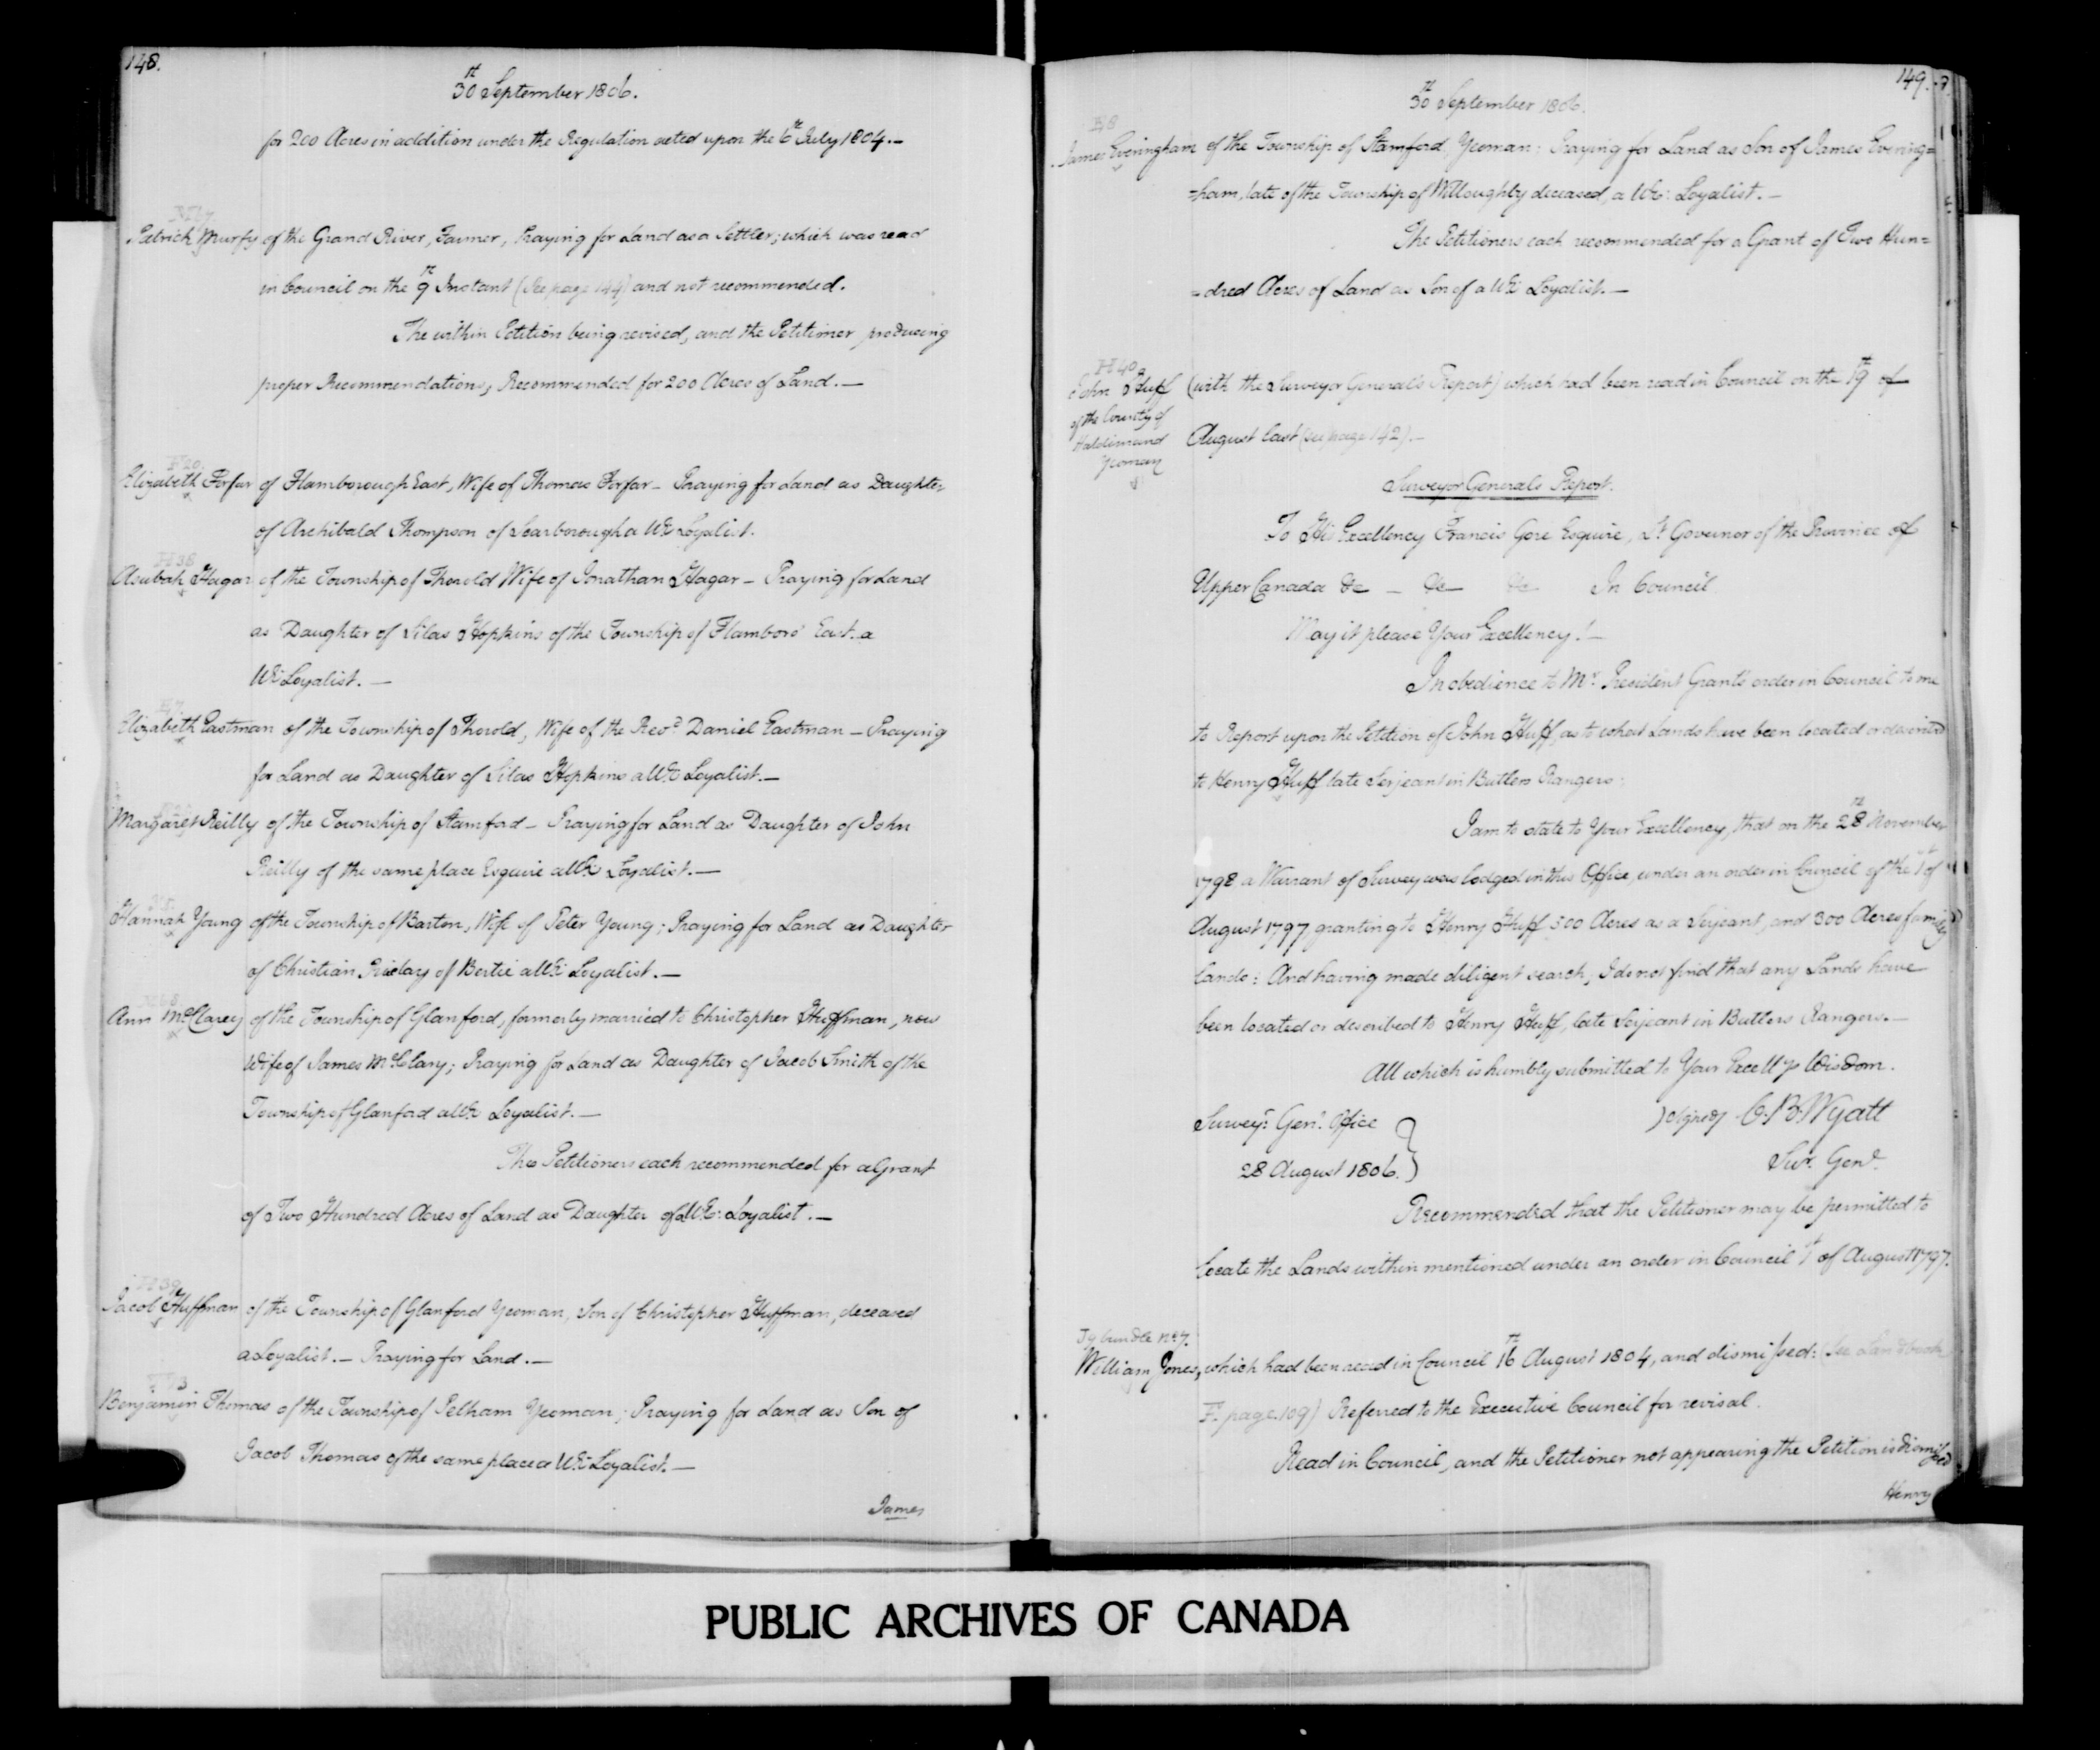 148.
30th September 1806.
for 200 Acres in addition under the Regulation acted upon the 6th July 1804.—
Patrick Murfy of the Grand River, Farmer, Praying for Land as a Settler; which was read
in Council on the 9th Instant (See page 144) and not recommended.
The within Petition being revised, and the Petitioner producing
proper Recommendations, Recommended for 200 Acres of Land.—
Elizabeth Forfar of Flamborough East, Wife of Thomas Forfar— Praying for Land as Daughter
of Archibald Thompson of Scarborough a UE Loyalist.
H38
Asubah Hagar of the Township of Thorold Wife of Jonathan Hagar— Praying for Land
as Daughter of Silas Hopkins of the Township of Flamboro' East a
UE Loyalist.—
Elizabeth Eastman of the Township of Thorold, Wife of the Revd Daniel Eastman— Praying
for Land as Daughter of Silas Hopkins a UE Loyalist.—
Margaret Reilly of the Township of Stamford— Praying for Land as Daughter of John
Reilly of the same place Esquire a UE Loyalist.—
Hannah Young of the Township of Barton, Wife of Peter Young; Praying for Land as Daughter
of Christian of Bertie a UE Loyalist.—
Ann McClarey of the Township of Glanford, formerly married to Christopher Huffman, now
Wife of James McClary; Praying for Land as Daughter of Jacob Smith of the
Township of Glanford a UE Loyalist.—
The Petitioners each recommended for a Grant
of Two Hundred Acres of Land as Daughter of UE: Loyalist.—
H39
Jacob Huffman of the Township of Glanford Yeoman, Son of Christopher Huffman, deceased
a Loyalist.— Praying for Land.—
Benjamin Thomas of the Township of Pelham Yeoman; Praying for Land as Son of
Jacob Thomas of the same place a UE Loyalist.—
James
149.
30th September 1806.
E8
James Everingham of the Township of Stamford, Yeoman: Praying for Land as Son of James Evering=
=ham, late of the Township of Willoughby deceased, a UE: Loyalist.—
The Petitioners each recommended for a Grant of Two Hun=
=dred Acres of Land as Son of a UE Loyalist.—
H40
John Huff
of the County of
Haldimand
Yeoman
(with the Surveyor General's Report) which had been read in Council on the 19th of
August last (see page 142).—
Surveyor Generals Report.
To His Excellency Francis Gore Esquire, Lt Governor of the Province of
Upper Canada &c — &c — &c In Council
May it please Your Excellency!—
In obedience to Mr. President Grants order in Council to me
to Report upon the Petition of John Huff, as to what Lands have been located or described
to Henry Huff late Serjeant in Butlers Rangers:
I am to state to Your Excellency, that on the 28th November
1798 a Warrant of Survey was lodged in this Office, under an order in Council of the 1st of
August 1797 granting to Henry Huff 500 Acres as a Serjeant, and 300 Acres family
lands: And having made diligent search, I do not find that any Lands have
been located or described to Henry Huff, late Serjeant in Butlers Rangers.—
All which is humbly submitted to Your Excellys Wisdom.
Surveyr. Genl. Office
28 August 1806.
)signed( C. B. Wyatt
Sur. Genl.
Recommended that the Petitioner may be permitted to
locate the Lands within mentioned under an order in Council 1st of August 1797.
J9 bundle No 7.
William Jones, which had been read in Council 16th August 1804, and dismissed: (See Land book
F. page 109) Referred to the Executive Council for revisal.
Read in Council, and the Petitioner not appearing the Petition is dismissed
Henry
PUBLIC ARCHIVES OF CANADA